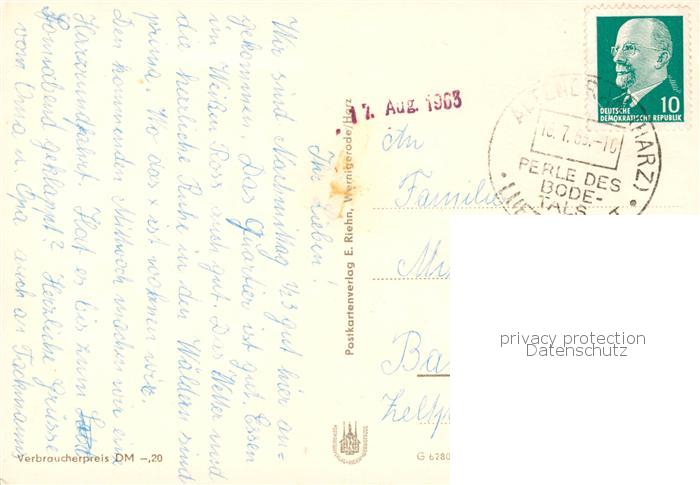 Ihr Lieben!
Wir sind Nachmittag 1/23 gut hier an-
gekommen. Das Quartier ist gut. Essen
im Weißen Ross auch gut. Das Wetter und
die herrliche Ruhe in den Wäldern sind
prima. Wo das x ist wohnen wir.
Den kommenden Mittwoch machen wir eine
Harzrundfahrt. Hat es bis zum
Sonnabend geklappt? Herzliche Grüsse
von Oma u. Opa auch an
Verbraucherpreis DM -,20
Postkartenverlag E. Riehn, Wernigerode/Harz
G 6280
17. Aug. 1963
An
Familie
DEUTSCHE
DEMOKRATISCHE REPUBLIK
10
(HARZ)
PERLE DES
BODE-
TALS
privacy protection
Datenschutz